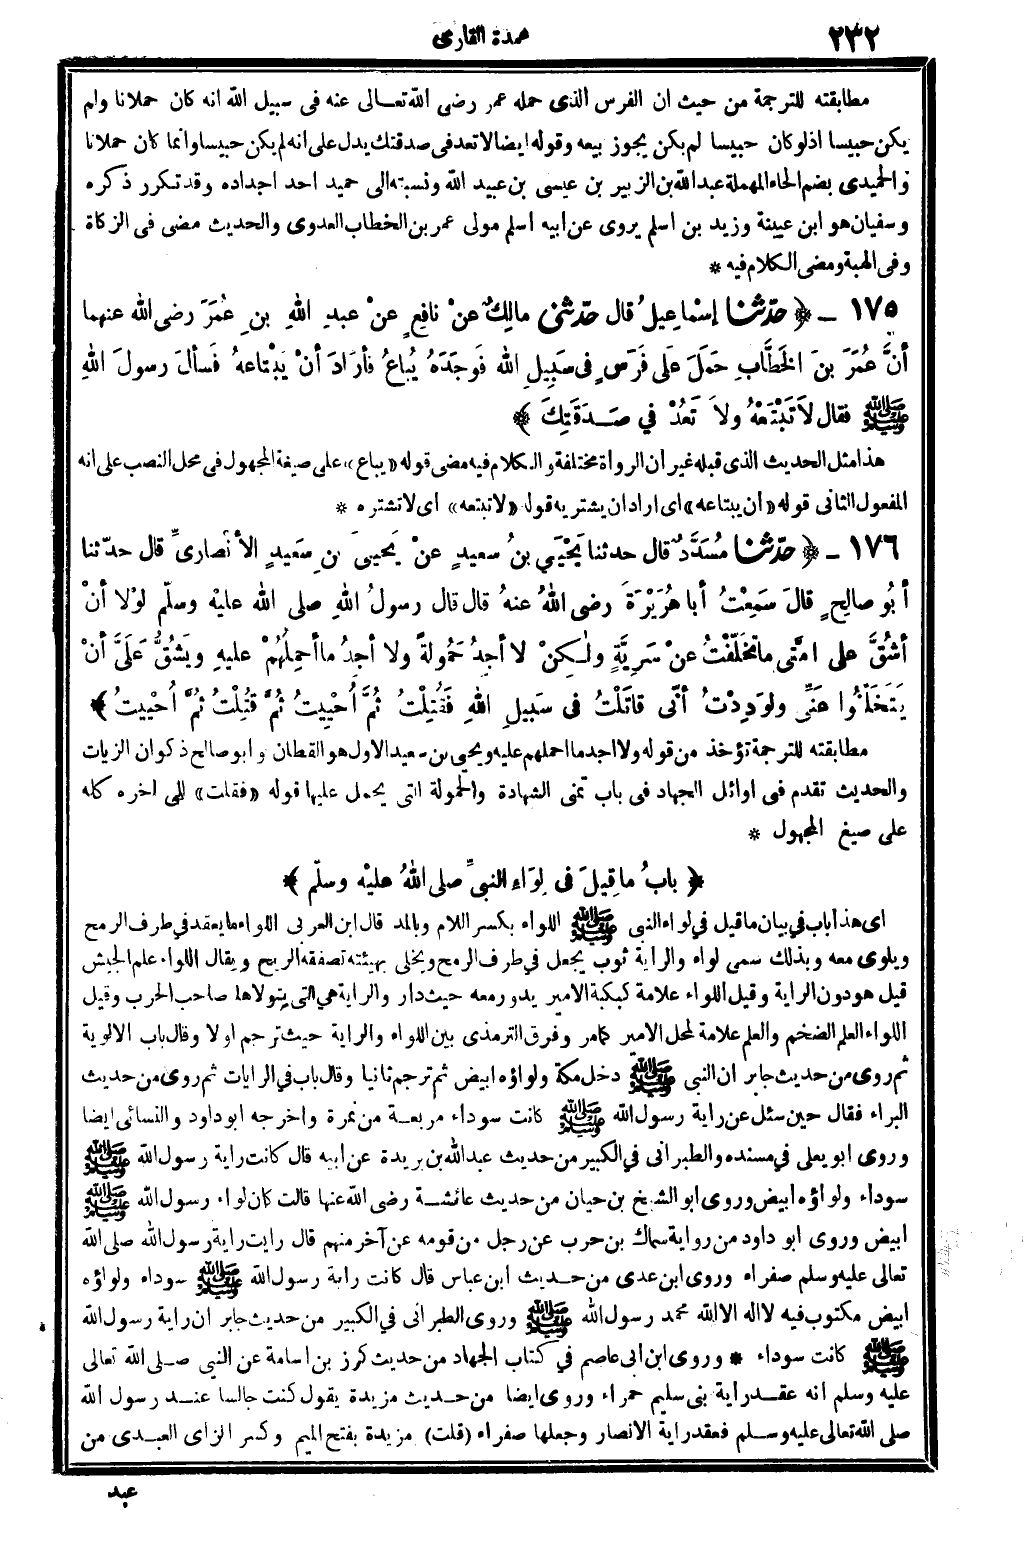 ٢٣٢
عمدة القارى
مطابقته للترجمة من حيث ان الفرس الذى حمله عمر رضى الله تعالى عنه فى سبيل الله انه كان حملانا ولم
يكن حبيسا اذ لو كان حبيسا لم يكن يجوز بيعه وقوله ايضا لا تعد فى صدقتك يدل على انه لم يكن حبيسا وانما كان حملانا
والحميدى بضم الحاء المهملة عبد الله بن الزبير بن عيسى بن عبيد الله ونسبته الى حميد احد اجداده وقد تكرر ذكره
وسفيان هو ابن عيينة وزيد بن اسلم يروى عن ابيه اسلم مولى عمر بن الخطاب العدوى والحديث مضى فى الزكاة
وفى الهبة ومضى الكلام فيه *
١٧٥ - ﴿ حدّثنا إسْماعِيلُ قال حدّثنى مالِكٌ عنْ نافِعٍ عنْ عبدِ اللهِ بنِ عُمَرَ رضى الله عنهما
أنَّ عُمَرَ بنَ الخَطَّابِ حمَلَ علَى فَرَسٍ فى سَبِيلِ الله فَوجَدَهُ يُباعُ فأرَادَ أنْ يَبْتاعهُ فَسألَ رسولَ اللهِ
ﷺ فقال لاَ تَبْتَعْهُ ولاَ تَعُدْ في صَدَقَتِكَ ﴾
هذا مثل الحديث الذى قبله غير ان الرواة مختلفة والكلام فيه مضى قوله «يباع» على صيغة المجهول فى محل النصب على انه
المفعول الثانى قوله «أن يبتاعه» اى اراد ان يشتريه قوله «لا تبتعه» اى لا تشتره *
١٧٦ - ﴿ حدّثنا مُسَدَّدٌ قال حدثنا يَحْيَى بنُ سعيدٍ عنْ يَحْيىَ بنِ سَعِيدٍ الأنْصارىِّ قال حدّثنا
أبُو صالِحٍ قالَ سَمِعْتُ أبا هُرَيْرَةَ رضى اللهُ عنهُ قال قال رسولُ اللهِ صلى الله عليْه وسلّم لوْلا أنْ
أشُقَّ على امَّتى ما تخَلّفْتُ عنْ سَرِيَّةٍ ولـكِنْ لا أجِدُ حَمُولةً ولا أجِدُ ما أحمِلُهُمْ عليهِ ويَشُقُّ علَىَّ أنْ
يَتَخَلَّفُوا عَنِّى ولوَدِدْتُ أنّى قاتَلْتُ فى سَبيلِ اللهِ فَقُتِلْتُ ثُمَّ أُحْيِيتُ ثُمَّ قُتِلْتُ ثُمَّ أُحْيِيتُ ﴾
مطابقته للترجمة تؤخذ من قوله ولا اجد ما احملهم عليه ويحيى بن سعيد الاول هو القطان وابو صالح ذكوان الزيات
والحديث تقدم فى اوائل الجهاد فى باب تمنى الشهادة والحمولة التى يحمل عليها قوله «فقتلت» الى اخره كله
على صيغ المجهول *
﴿ بابُ ما قِيلَ فى لِوَاءِ النبىِّ صلى اللهُ عليْه وسلّم ﴾
اى هذا باب في بيان ما قيل في لواء النبى ﷺ اللواء بكسر اللام وبالمد قال ابن العربى اللواء ما يعقد في طرف الرمح
ويلوى معه وبذلك سمى لواء والراية ثوب يجعل في طرف الرمح ويخلى بهيئته تصفقه الريح ويقال اللواء علم الجيش
قيل هو دون الراية وقيل اللواء علامة كبكبة الامير يدور معه حيث دار والراية هي التى يتولاها صاحب الحرب وقيل
اللواء العلم الضخم والعلم علامة لمحل الامير كمامر وفرق الترمذى بين اللواء والراية حيث ترجم اولا وقال باب الالوية
ثم روى من حديث جابر ان النبى ﷺ دخل مكة ولواؤه ابيض ثم ترجم ثانيا وقال باب في الرايات ثم روى من حديث
البراء فقال حين سئل عن راية رسول الله ﷺ كانت سوداء مربعة من نمرة واخرجه ابو داود والنسائى ايضا
وروى ابو يعلى في مسنده والطبرانى في الكبير من حديث عبد الله بن بريدة عن ابيه قال كانت راية رسول الله ﷺ
سوداء ولواؤه ابيض وروى ابو الشيخ بن حيان من حديث عائشة رضى الله عنها قالت كان لواء رسول الله ﷺ
ابيض وروى ابو داود من رواية سماك بن حرب عن رجل من قومه عن آخر منهم قال رايت راية رسول الله صلى الله
تعالى عليه وسلم صفراء وروى ابن عدى من حديث ابن عباس قال كانت راية رسول الله ﷺ سوداء ولواؤه
ابيض مكتوب فيه لا اله الا الله محمد رسول الله ﷺ وروى الطبرانى في الكبير من حديث جابر ان راية رسول الله
ﷺ كانت سوداء * وروى ابن ابى عاصم في كتاب الجهاد من حديث كرز بن اسامة عن النبى صلى الله تعالى
عليه وسلم انه عقد راية بنى سليم حمراء وروى ايضا من حديث مزيدة يقول كنت جالسا عند رسول الله
صلى الله تعالى عليه وسلم فعقد راية الانصار وجعلها صفراء (قلت) مزيدة بفتح الميم وكسر الزاى العبدى من
عبد